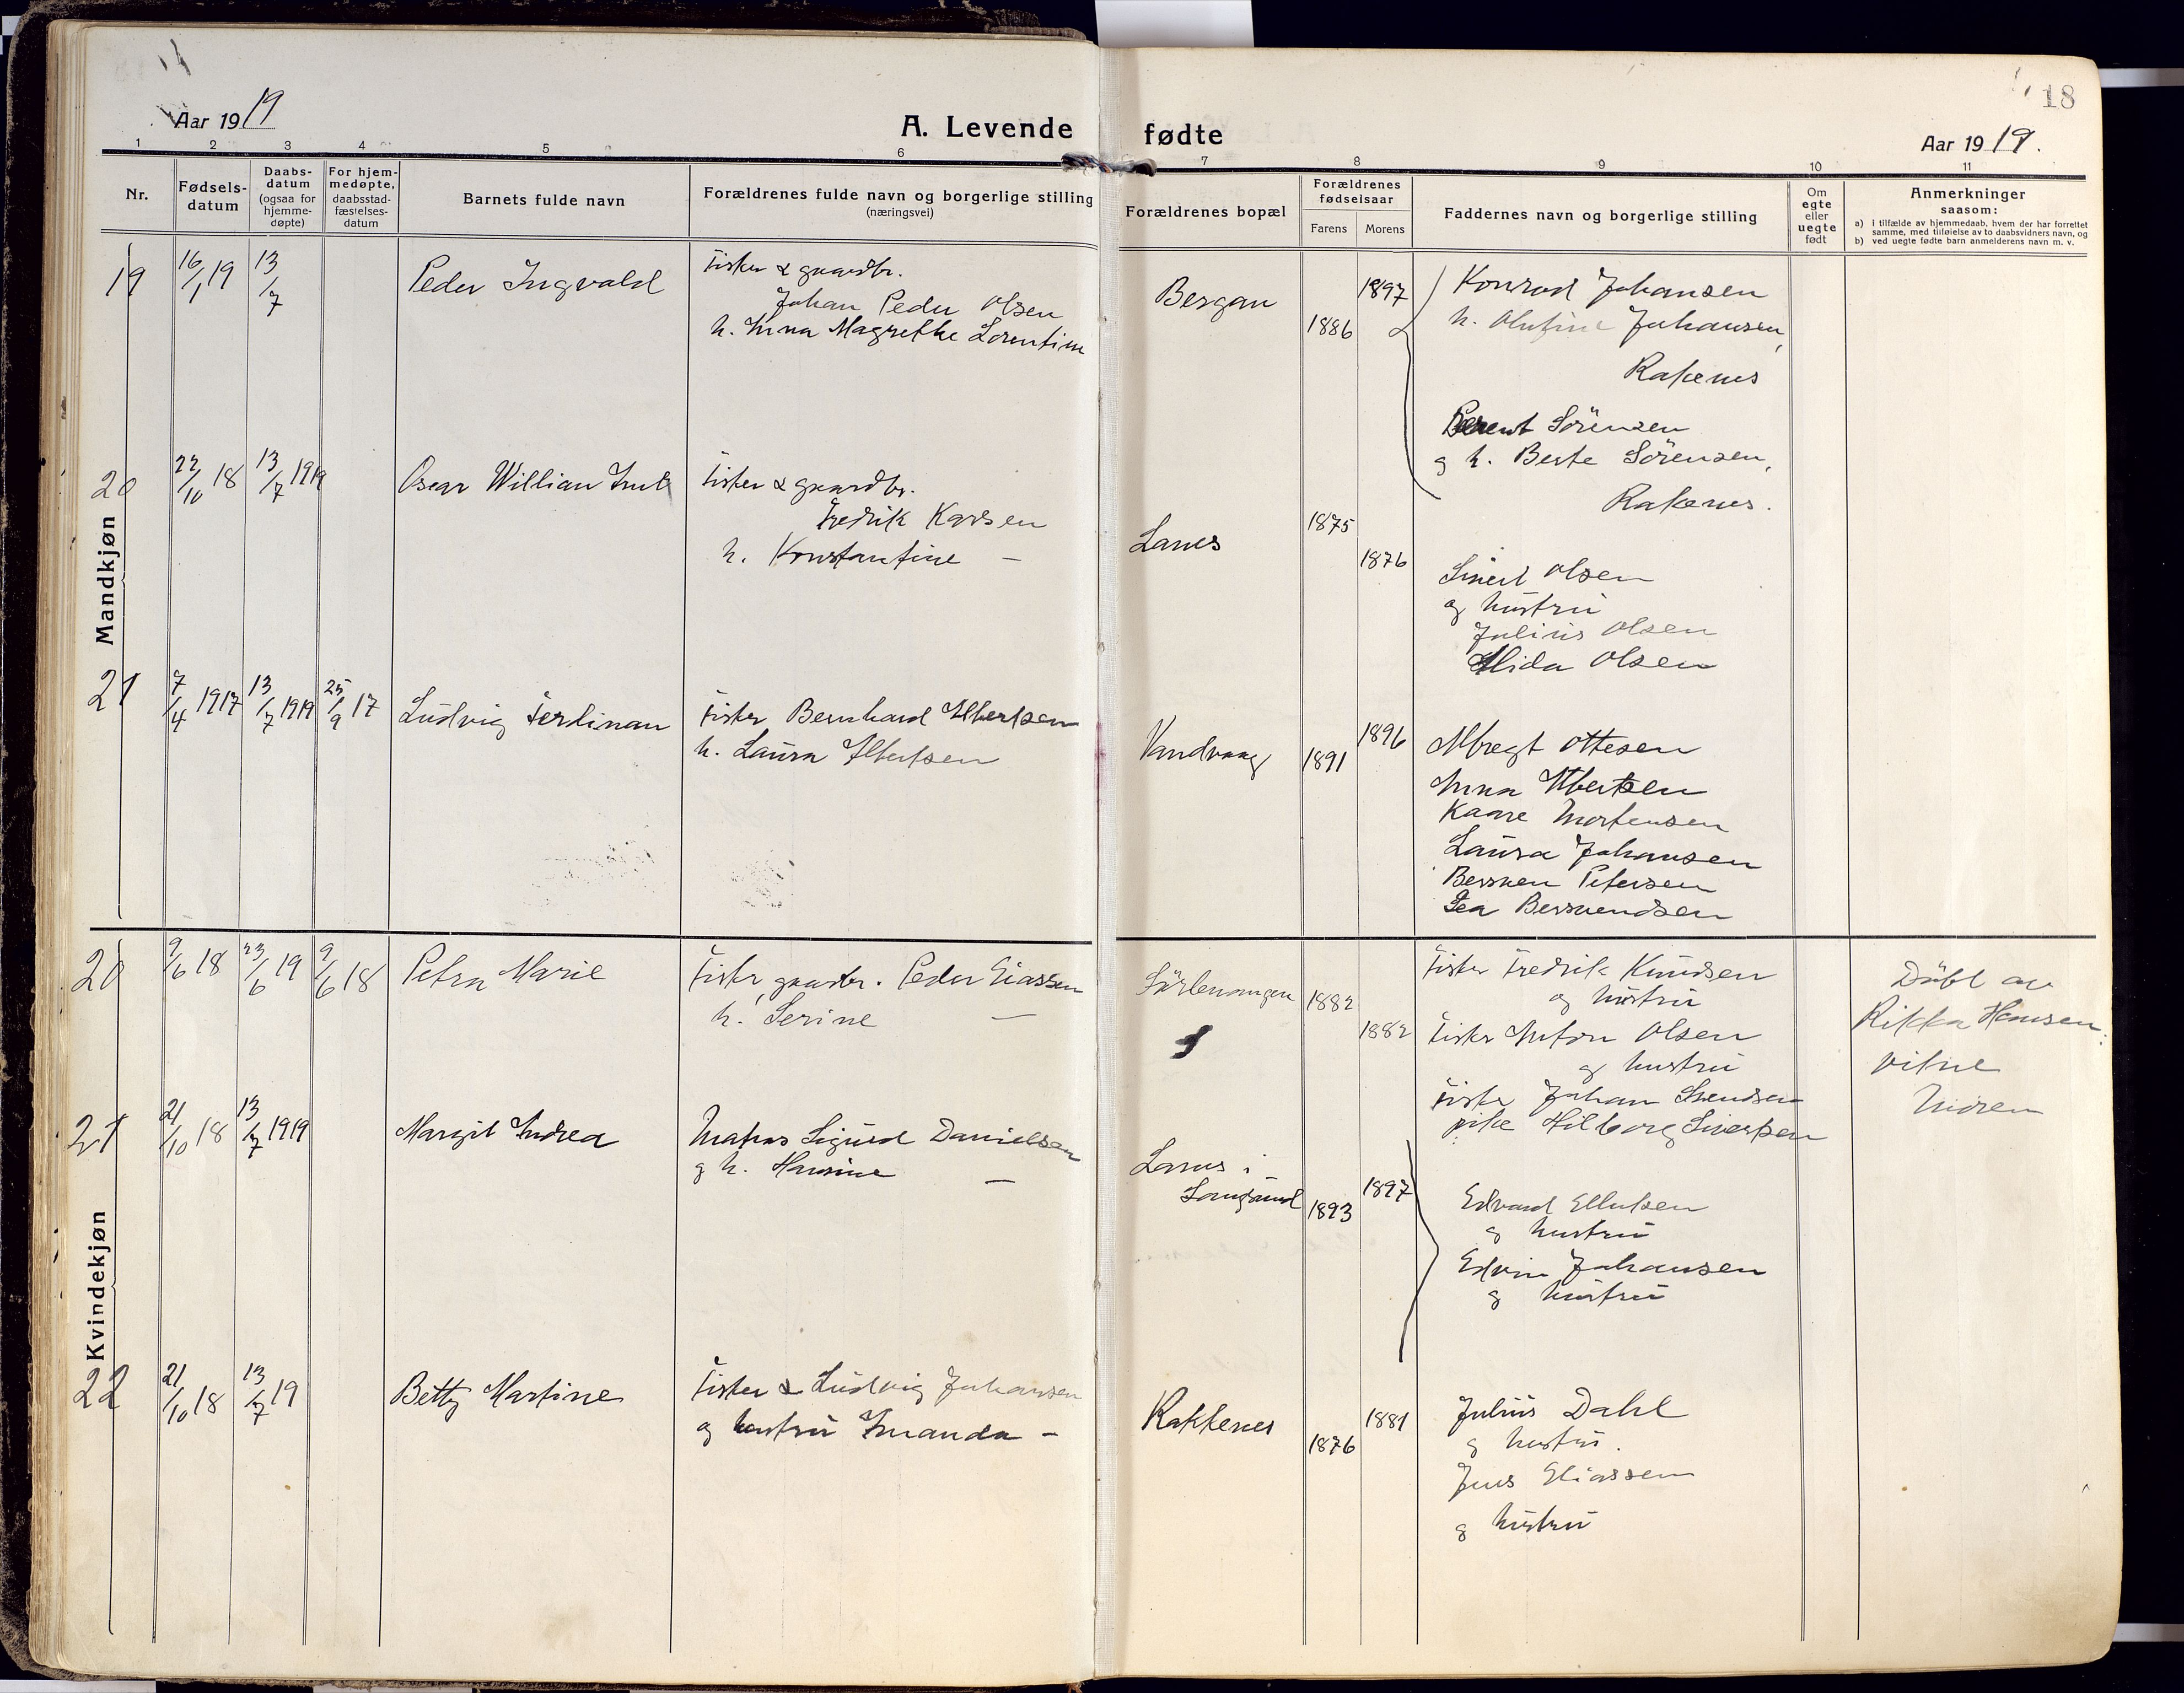 18
Aar 1919
A. Levende fødte
Aar 1919.
1 2 3 4 5 6 7 8 9 10 11
Nr.
Fødsels-
datum
Daabs-
datum
(ogsaa for
hjemme-
døpte)
For hjem-
medøpte,
daabsstad-
fæstelses-
datum
Barnets fulde navn
Forældrenes fulde navn og borgerlige stilling
(næringsvei)
Forældrenes bopæl
Forældrenes
fødselsaar
Farens Morens
Faddernes navn og borgerlige stilling
Om
egte
eller
uegte
født
Anmerkninger
saasom:
a) i tilfælde av hjemmedaab, hvem der har forrettet
samme, med tilføielse av to daabsvidners navn, og
b) ved uegte fødte barn anmelderens navn m. v.
Mandkjøn
19
16/1 19
13/7
Peder Ingvald
Fisker & gaardbr.
Johan Peder Olsen
h. Anna Magrethe Lorentine
Bergan
1886
1897
Konrad Johansen
h. Olufine Johansen,
Rakenes
Berent Sörensen
g h. Berte Sörensen,
Rakenes.
20
22/10 18
13/7 1919
Oscar William
Fisker & gaardbr.
Fredrik Karlsen
h. Konstantine —
Lanes
1875
1876
Sivert Olsen
og hustru
Julius Olsen
Alida Olsen
21
7/4 1917
13/7 1919
25/9 17
Ludvig Ferdinan
Fisker Bernhard Albertsen
h. Laura Albertsen
Vandvaag
1891
1896
Albregt Ottesen
Anna Albertsen
Kaare Mortensen
Laura Johansen
Petersen
Lea Bersvendsen
Kvindekjøn
20
9/6 18
23/6 19
9/6 18
Petra Marie
Fisker, gaardbr. Peder Eiassen
h. Serine —
Sörlenangen
1882
1882
Fisker Fredrik Knudsen
og hustru
Fisker Anton Olsen
og hustru
Fisker Johan Svendsen
pike Hilborg Sivertsen
Döbt av
Rikka Hansen.
vitne
Moren
21
21/10 18
13/7 1919
Margit Andrea
Matros Sigurd Danielsen
g h. Hansine —
Lanes i
Langsund
1893
1897
Edvard Ellutsen
g hustru
Edvin Johansen
g hustru
22
21/10 18
13/7 19
Betty Martine
Fisker & Ludvig Johansen
og hustru Amanda —
Rakkenes
1876
1881
Julius Dahl
g hustru.
Jens Eliassen
g hustru